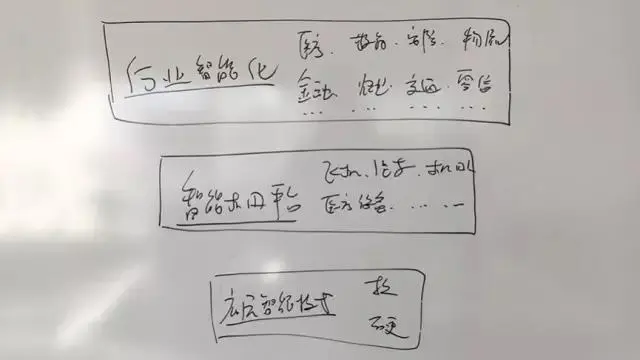 行业智能化
医疗. 教育. 安防. 物流
金融 农业 交通 零售
… … … …
智能利用平台
飞机. 汽车. 机器人
医疗设备. … …
底层智能技术
软
硬